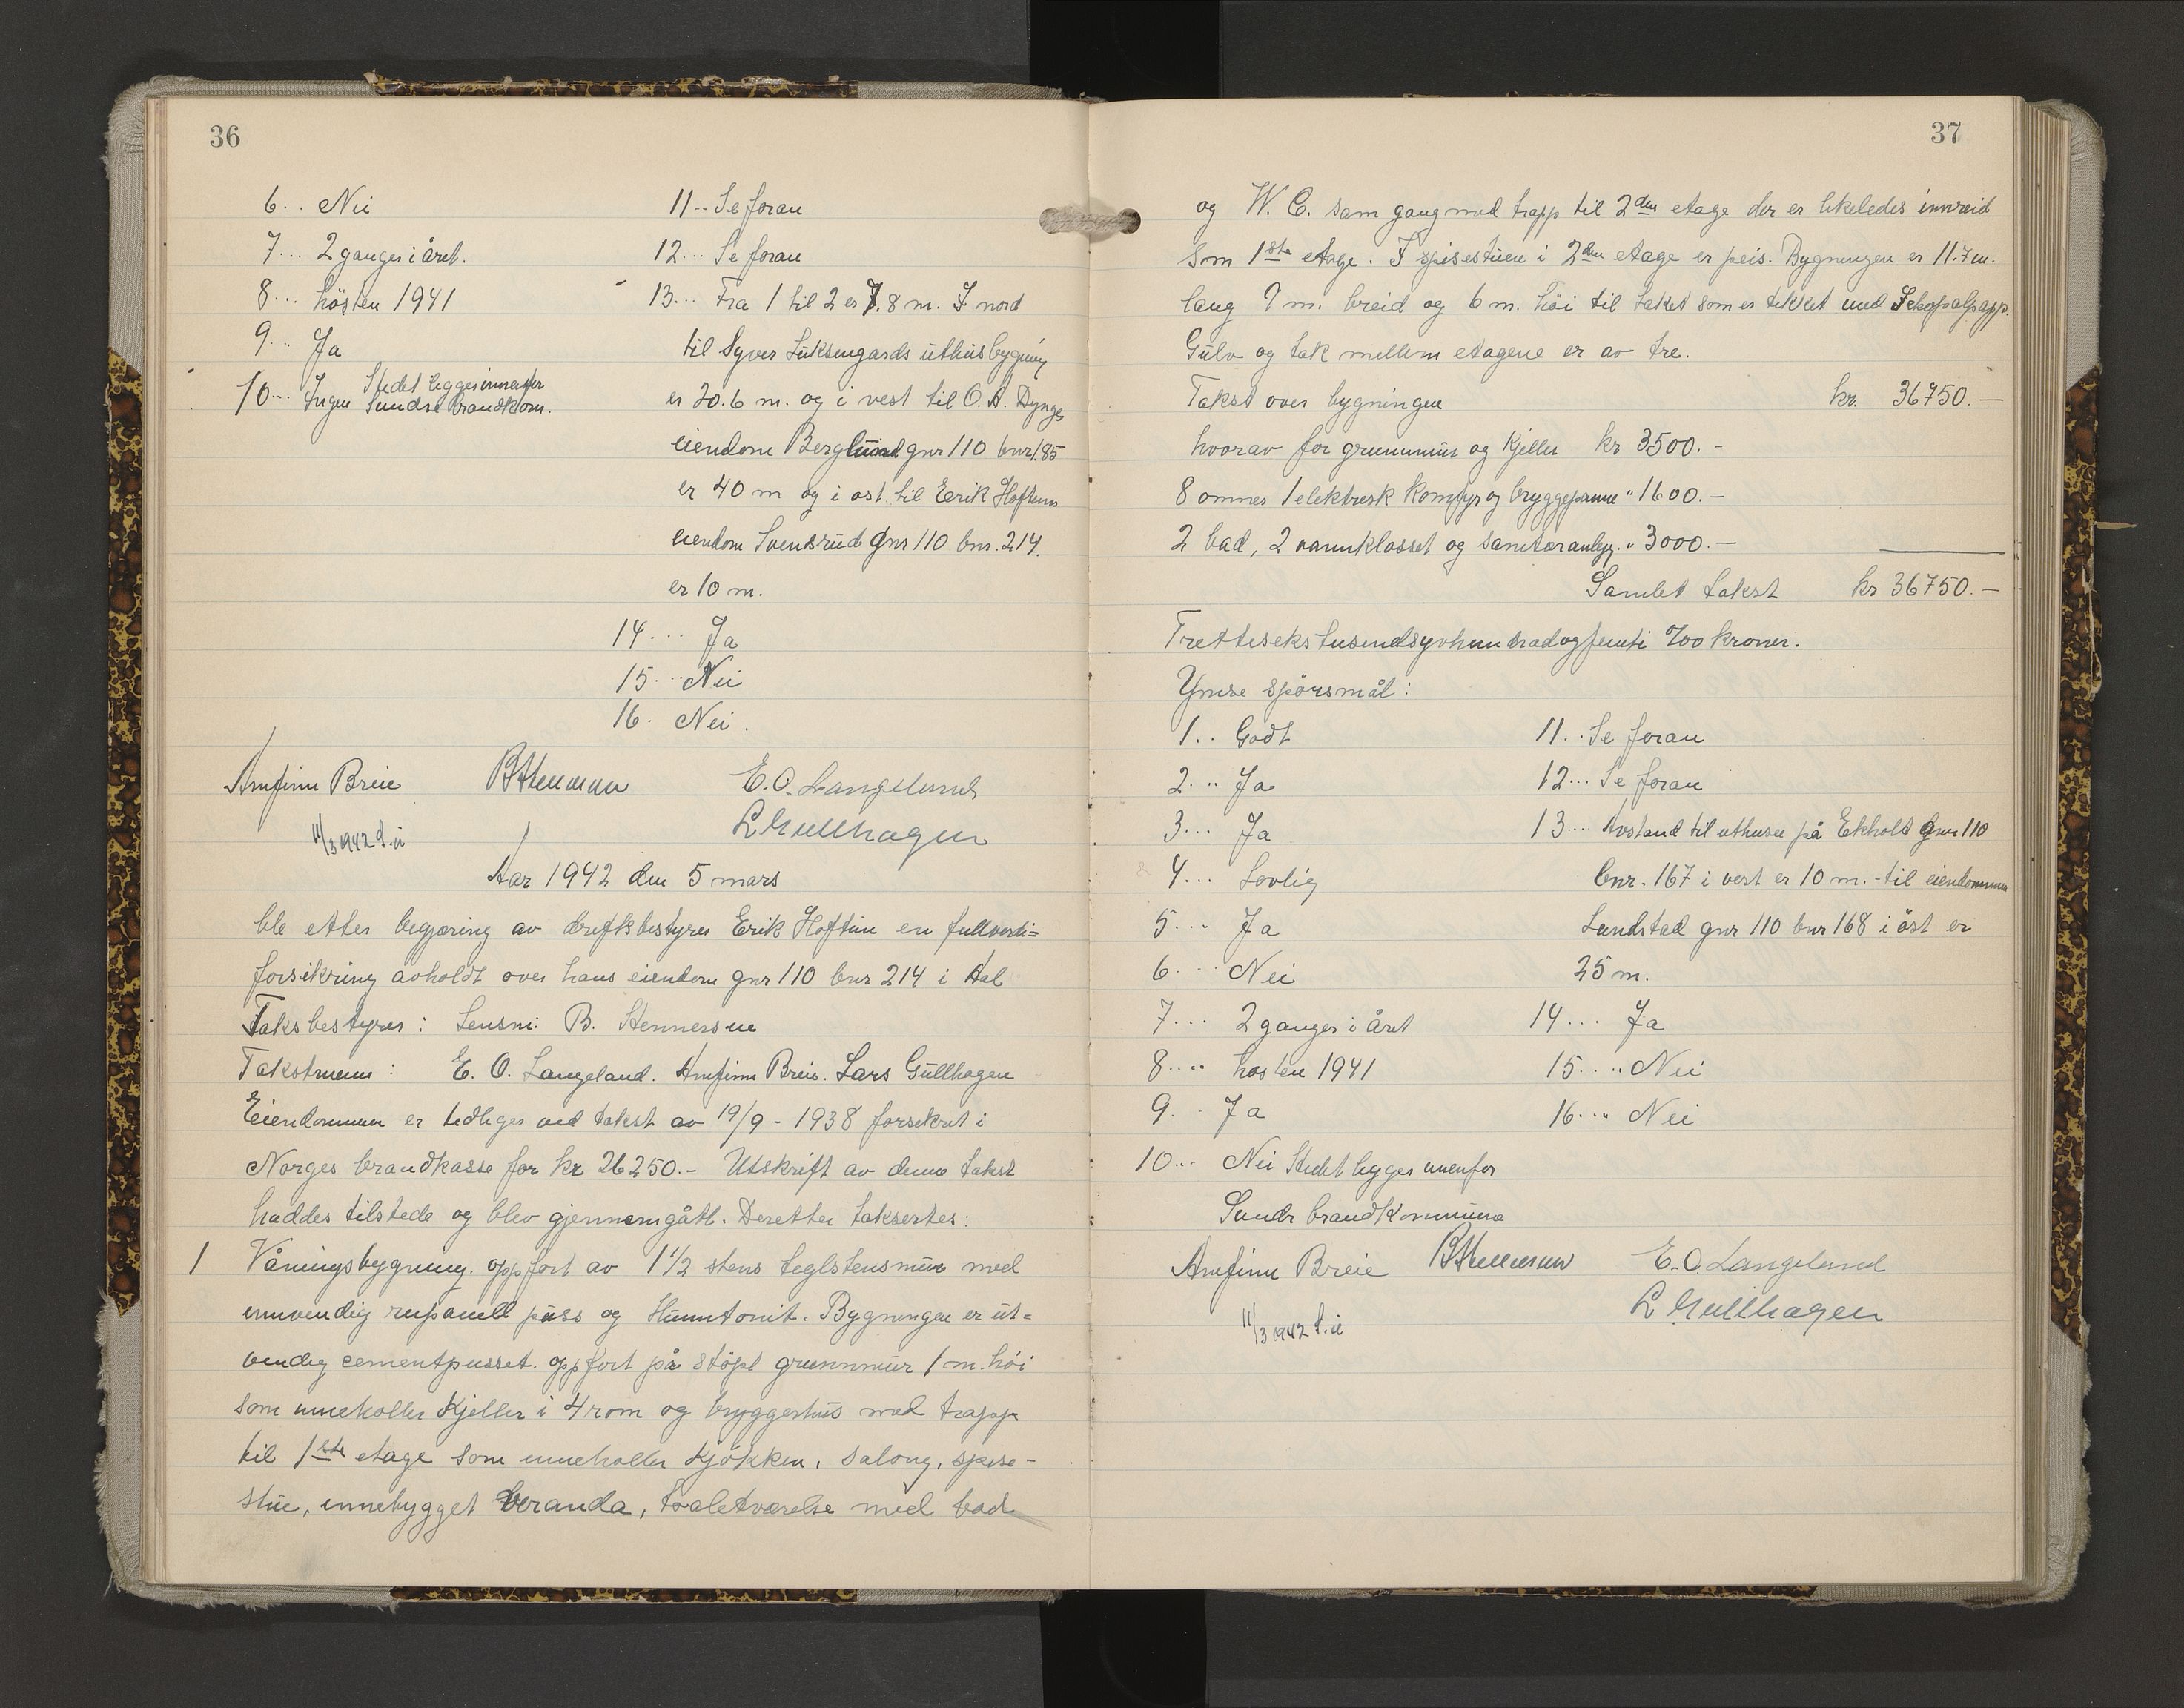 36
6.. Nei
7... 2 ganger i året.
8... hösten 1941
9... Ja
10... Ingen Stedet ligger innenfor
Sundre brandkom.
11.. Se foran
12... Se foran
13... Fra 1 til 2 er 7.8 m. I nord
til Syver Luksengards uthusbygning
er 20.6 m. og i vest til O. A. Dynges
eiendom Berglund gnr 110 bnr 185
er 40 m og i ost til Eerik Hoftuns
eiendom Svensrud gnr 110 bnr. 214.
er 10 m.
14... Ja
15... Nei
16. Nei.
Arnfinn Breie BStennersen E. O. Langeland
L Gullhagen
11/3 1942 S.ü
Aar 1942 den 5 mars
ble etter begjæring av driftsbestyrer Erik Hoftun en fullverdi=
forsikring avholdt over hans eiendom gnr 110 bnr 214 i Aal
Taksbestyrer: Lensm: B. Stennersen
Takstmenn: E. O. Langeland. Arnfinn Breie. Lars Gullhagen
Eiendommen er tidliger ved takst av 19/9 - 1938 forsikret i
Norges brandkasse for kr 26250.- Utskrift av denne takst
haddes tilstede og blev gjennemgått. Deretter taksertes:
1 Våningsbygning. oppfort av 1 1/2 stens teglstensmur med
innvendig rupanell puss og Huntonit. Bygningen er ut=
vendig cementpusset. oppfort på stöpt grunnmur 1 m. höi
som inneholler Kjeller i 4 rom og bryggerhus med trapp
til 1ste etage som inneholler Kjökken, salong, spise-
stue, innebygget veranda, toaletværelse med bad
37
og W. C. sam gang med trapp til 2den etage der er likeledes innreid
som 1ste etage. I spisestuen i 2den etage er peis. Bygningen er 11.7 m.
lang 9 m. breid og 6 m. höi til taket som er tekket med Schopalpapp.
Gulv og tak mellem etagene er av tre.
Takst over bygningen kr. 36750.—
hvorav for grunnmur og Kjeller kr 3500.-
8 omner 1 elektrisk Komfyr og bryggepanne " 1600.—
2 bad, 2 vannklosset og sanitæranlegg. " 3000.—
Samlet takst kr 36750.—
Trettisekstusendsyvhundradogfemti %00 kroner.
Ymse spörsmål:
1.. Godt
2... Ja
3... Ja
4... Lovlig
5... Ja
6... Nei
7... 2 ganger i året
8.... hosten 1941
9... Ja
10... Nei Stedet ligger innenfor
Sundr brandkommune
11.. Se foran
12... Se foran
13... Avstand til uthuset på Ekholt gnr 110
bnr. 167 i vest er 10 m. - til eiendommen
Lundstad gnr 110 bnr 168 i öst er
25 m.
14... Ja
15.... Nei
16... Nei
Arnfinn Breie BStennersen E. O. Langeland
L Gullhagen
11/3 1942 S.ü